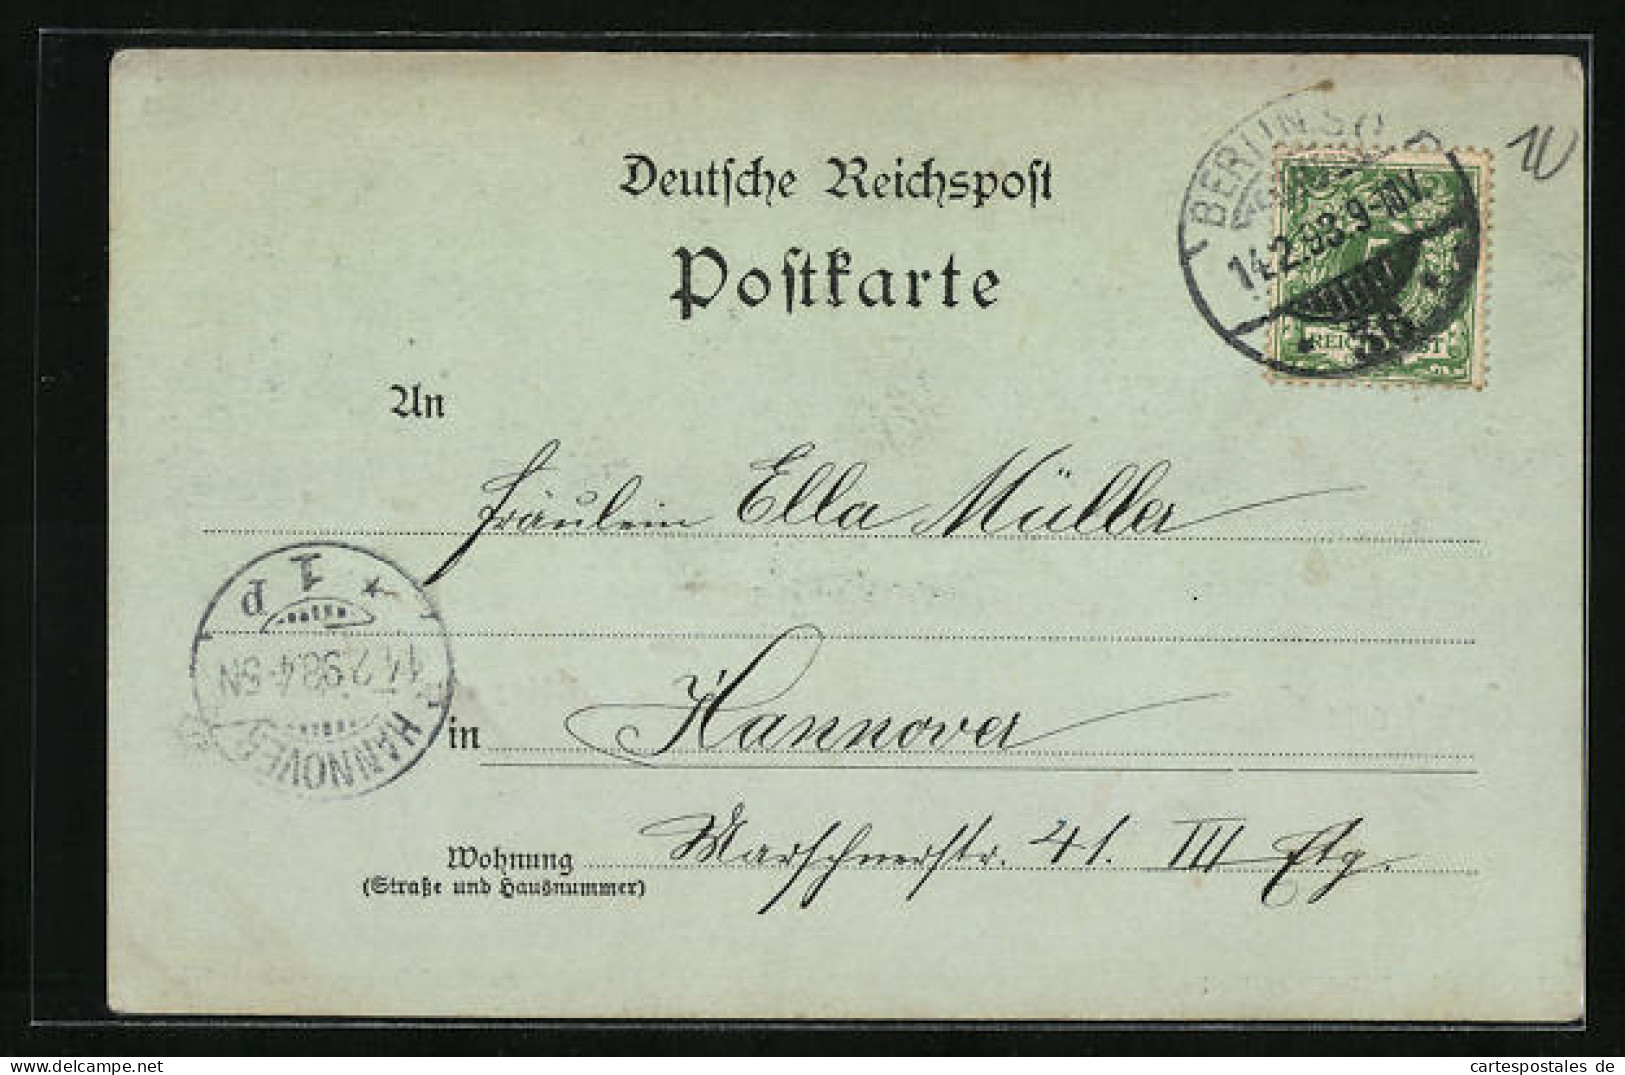 Deutsche Reichspost
Postkarte
BERLIN SO
14.2.98.9-10V.
36
REICHSPOST
10
An
Fräulein Ella Müller
1 p
14.2.98.4-5N
HANNOVER
in Hannover
Wohnung Marschnerstr. 41. III Etg.
(Straße und Hausnummer)
cartespostales de